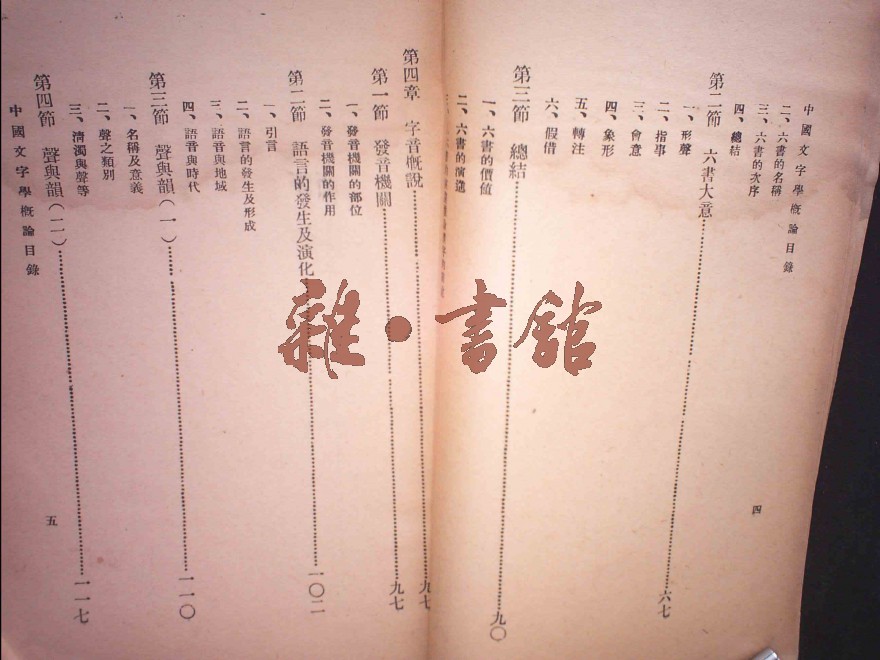 中國文字學概論目錄
二、六書的名稱
三、六書的次序
四、總結
第二節 六書大意 六七
一、形聲
二、指事
三、會意
四、象形
五、轉注
六、假借
第三節 總結 九〇
一、六書的價値
二、六書的演進
四
第四章 字音概說 九七
第一節 發音機關 九七
一、發音機關的部位
二、發音機關的作用
第二節 語言的發生及演化 一〇二
一、引言
二、語言的發生及形成
三、語音與地域
四、語音與時代
第三節 聲與韻（一） 一一〇
一、名稱及意義
二、聲之類別
三、淸濁與聲等
第四節 聲與韻（二） 一一七
中國文字學概論目錄
五
雜·書館